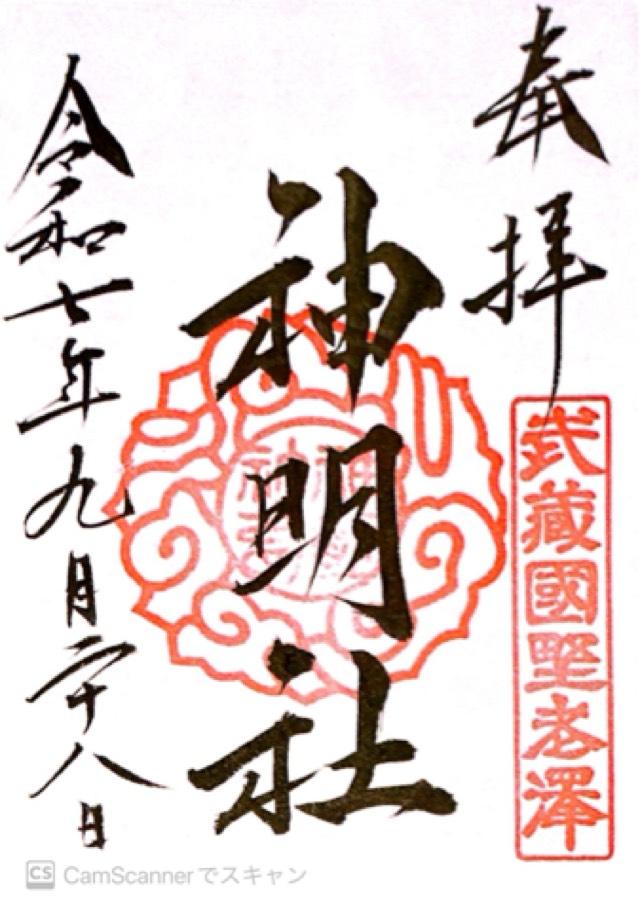 奉拝
武藏國野老澤
神明社
令和七年九月二十八日
CS CamScannerでスキャン